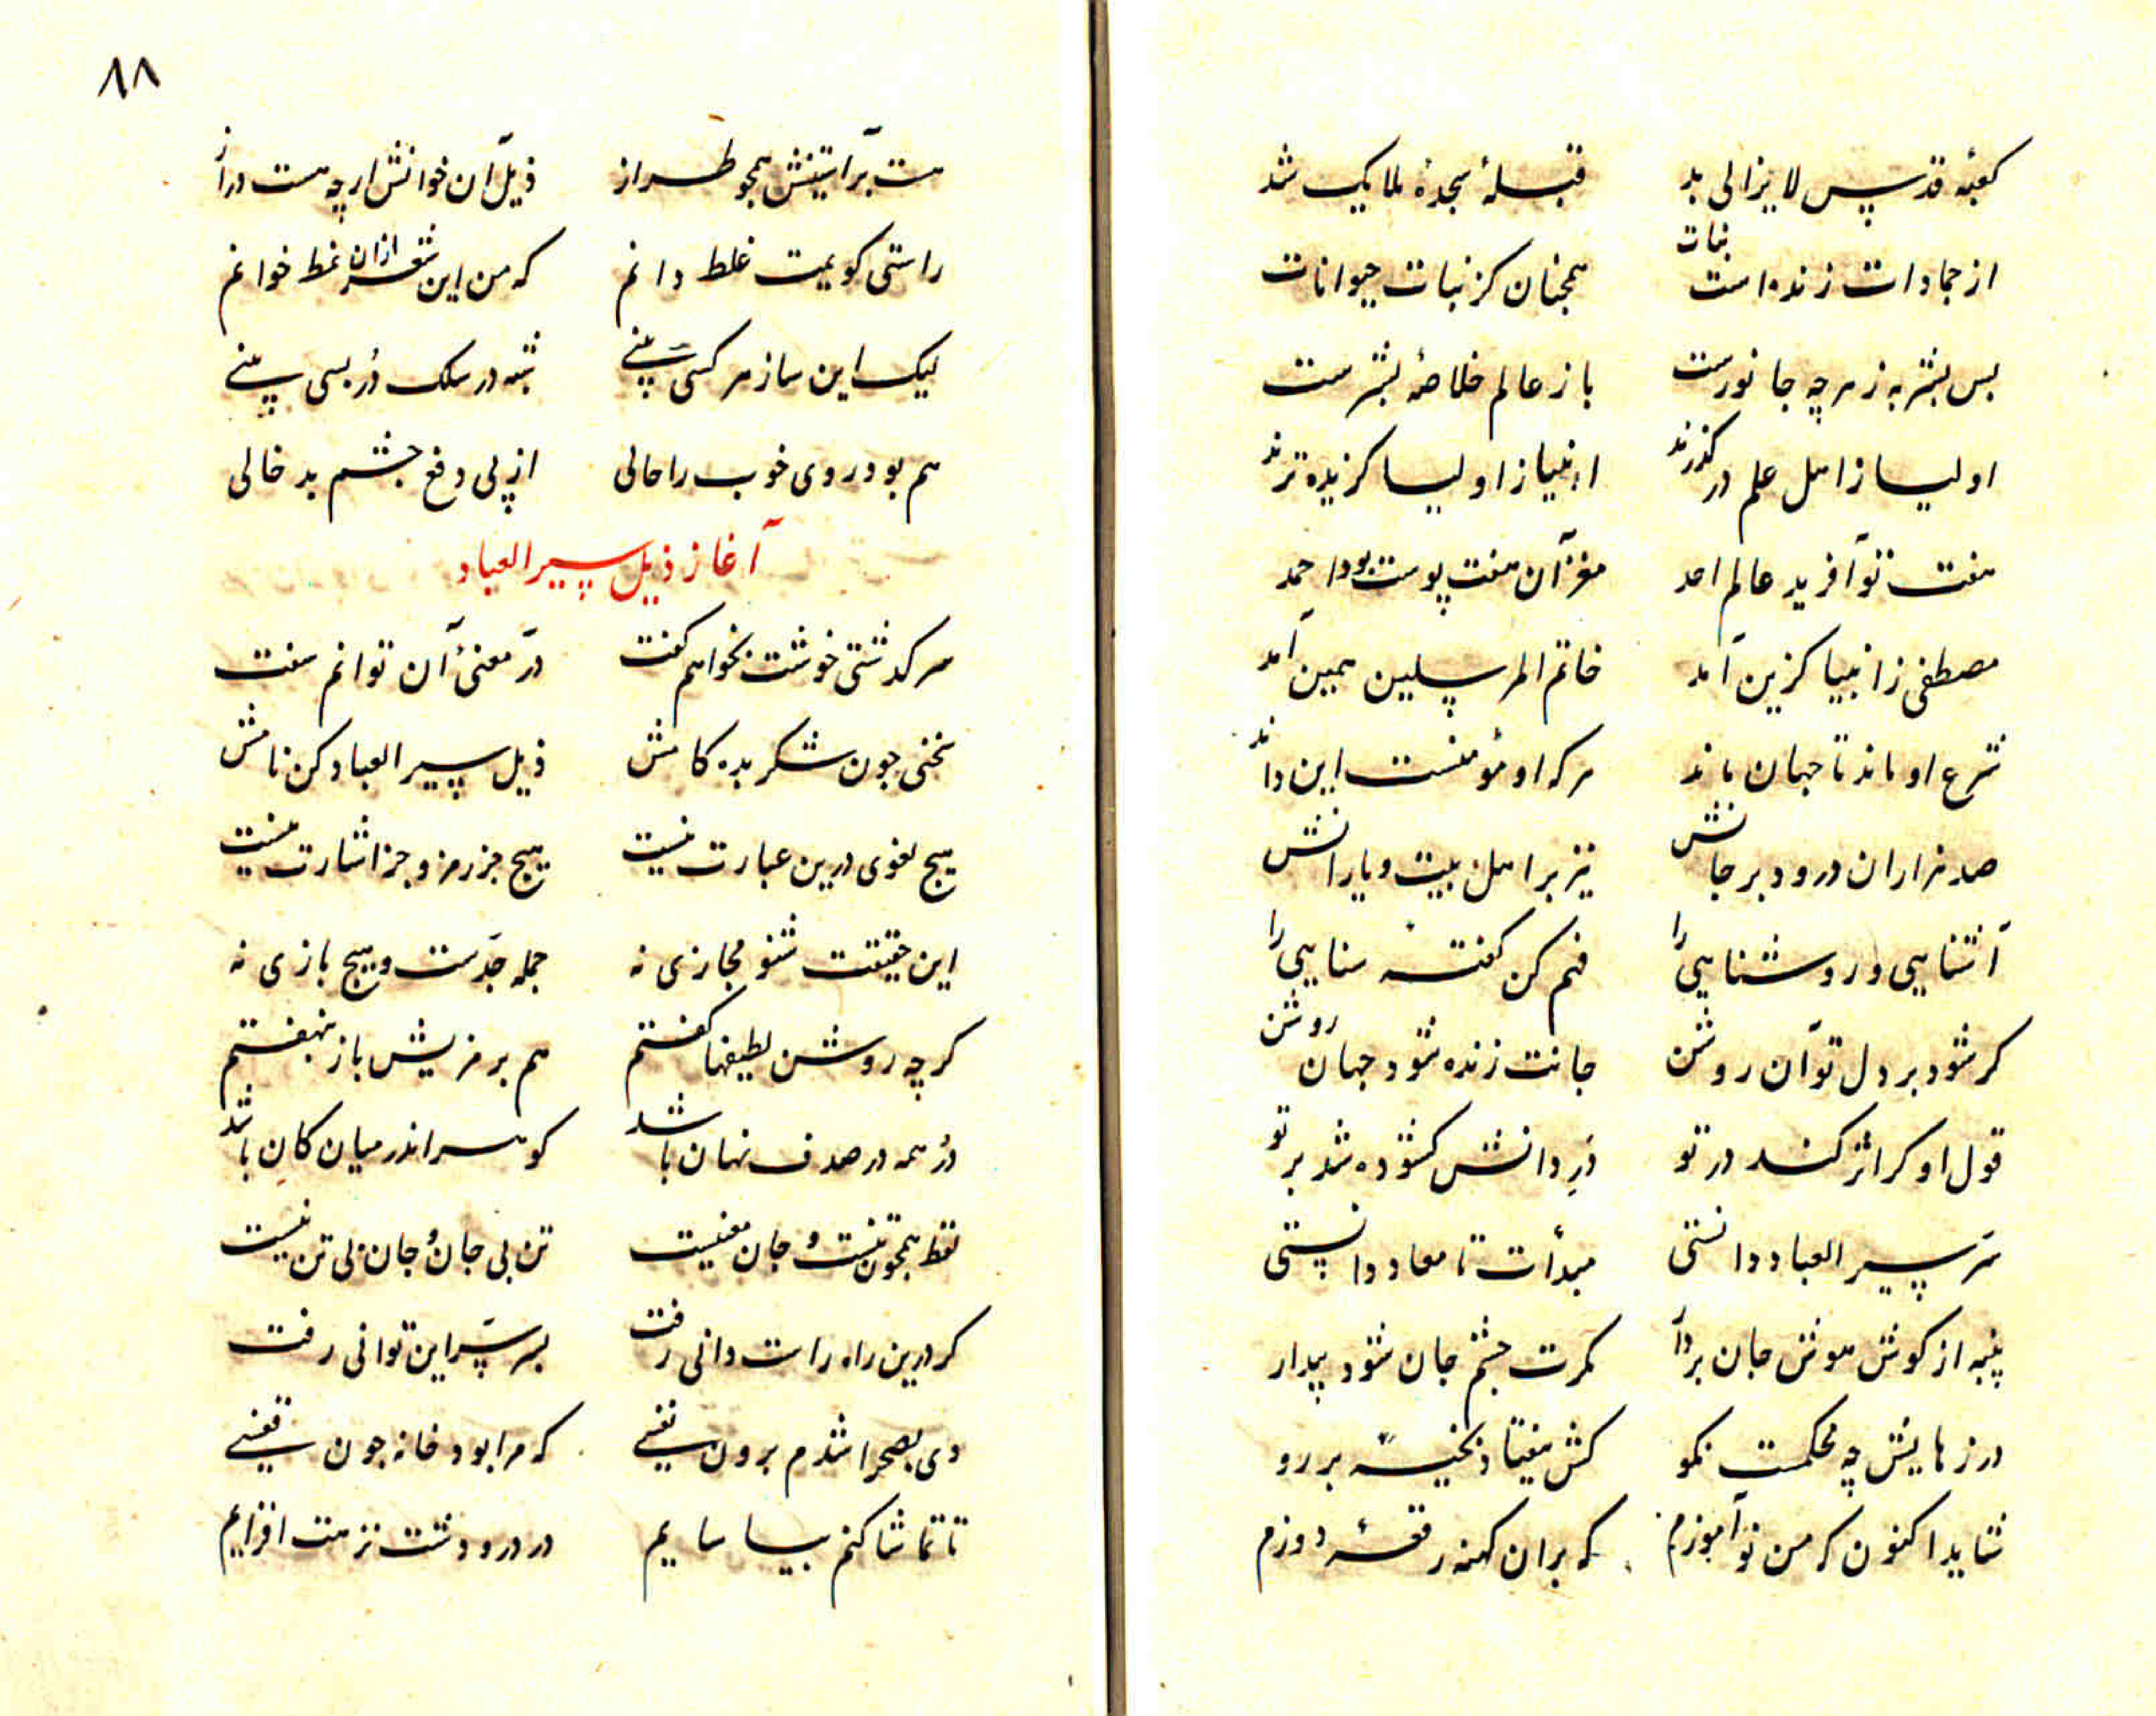 کعبهٔ قدس لایزالی بد قبلهٔ سجدهٔ ملایک شد
از جمادات زنده است نبات همچنان کز نبات حیوانات
بس بشر به ز هر چه جانورست باز عالم خلاصهٔ بشرست
اولیا ز اهل علم در گذرند انبیا ز اولیا گزیده ترند
هفت تو آفرید عالم احد مغز آن هفت پوست بود احمد
مصطفی ز انبیا گزین آمد خاتم المرسلین همین آمد
شرع او ماند تا جهان ماند هر که او مؤمنست این داند
صد هزاران درود بر جانش نیز بر اهل بیت و یارانش
آشنایی و روشنایی را فهم کن گفته سنایی را
کر شود بر دل تو آن روشن جانت زنده شود جهان روشن
قول او کر اثر کند در تو در دانش کشوده شد بر تو
سر سیر العباد دانستی مبدأت تا معاد دانستی
پنبه از کوش هوش جان بردار کرت چشم جان شود بیدار
درزهایش چه محکمست نکو کش نیفتاد بخیه بر رو
شاید اکنون که من تو آموزم که بران کهنه رقعهٔ دوزم
۸۸
هست بر آستینش همچو طراز ذیل آن خوانش ارچه هست دراز
راستی کویمت غلط دانم که من این شعر ازان نمط خوانم
لیک این ساز هر کسی بینی شبه در سلک در بسی بینی
هم بود روی خوب را حالی از پی دفع چشم بد خالی
آغاز ذیل سیر العباد
سرکذشتی خوشت بخواهم کفت در معنی آن توانم سفت
سخنی چون شکر بده کامش ذیل سیر العباد کن نامش
هیچ لغوی درین عبارت نیست هیچ جز رمز و جز اشارت نیست
این حقیقت شنو مجازی نه جمله جدست و هیچ بازی نه
کرچه روشن لطیفها کفتم هم برمزیش باز بنهفتم
در همه در صدف نهان باشد کوهر اندر میان کان باشد
لفظ همچون تنست و جان معنیست تن بی جان و جان بی تن نیست
کر درین راه راست دانی رفت بسر سر این توانی رفت
دی بصحرا شدم برون نفسی که مرا بود خانه چون قفسی
تا تماشا کنم بیاسایم در در و دشت نزهت افزایم